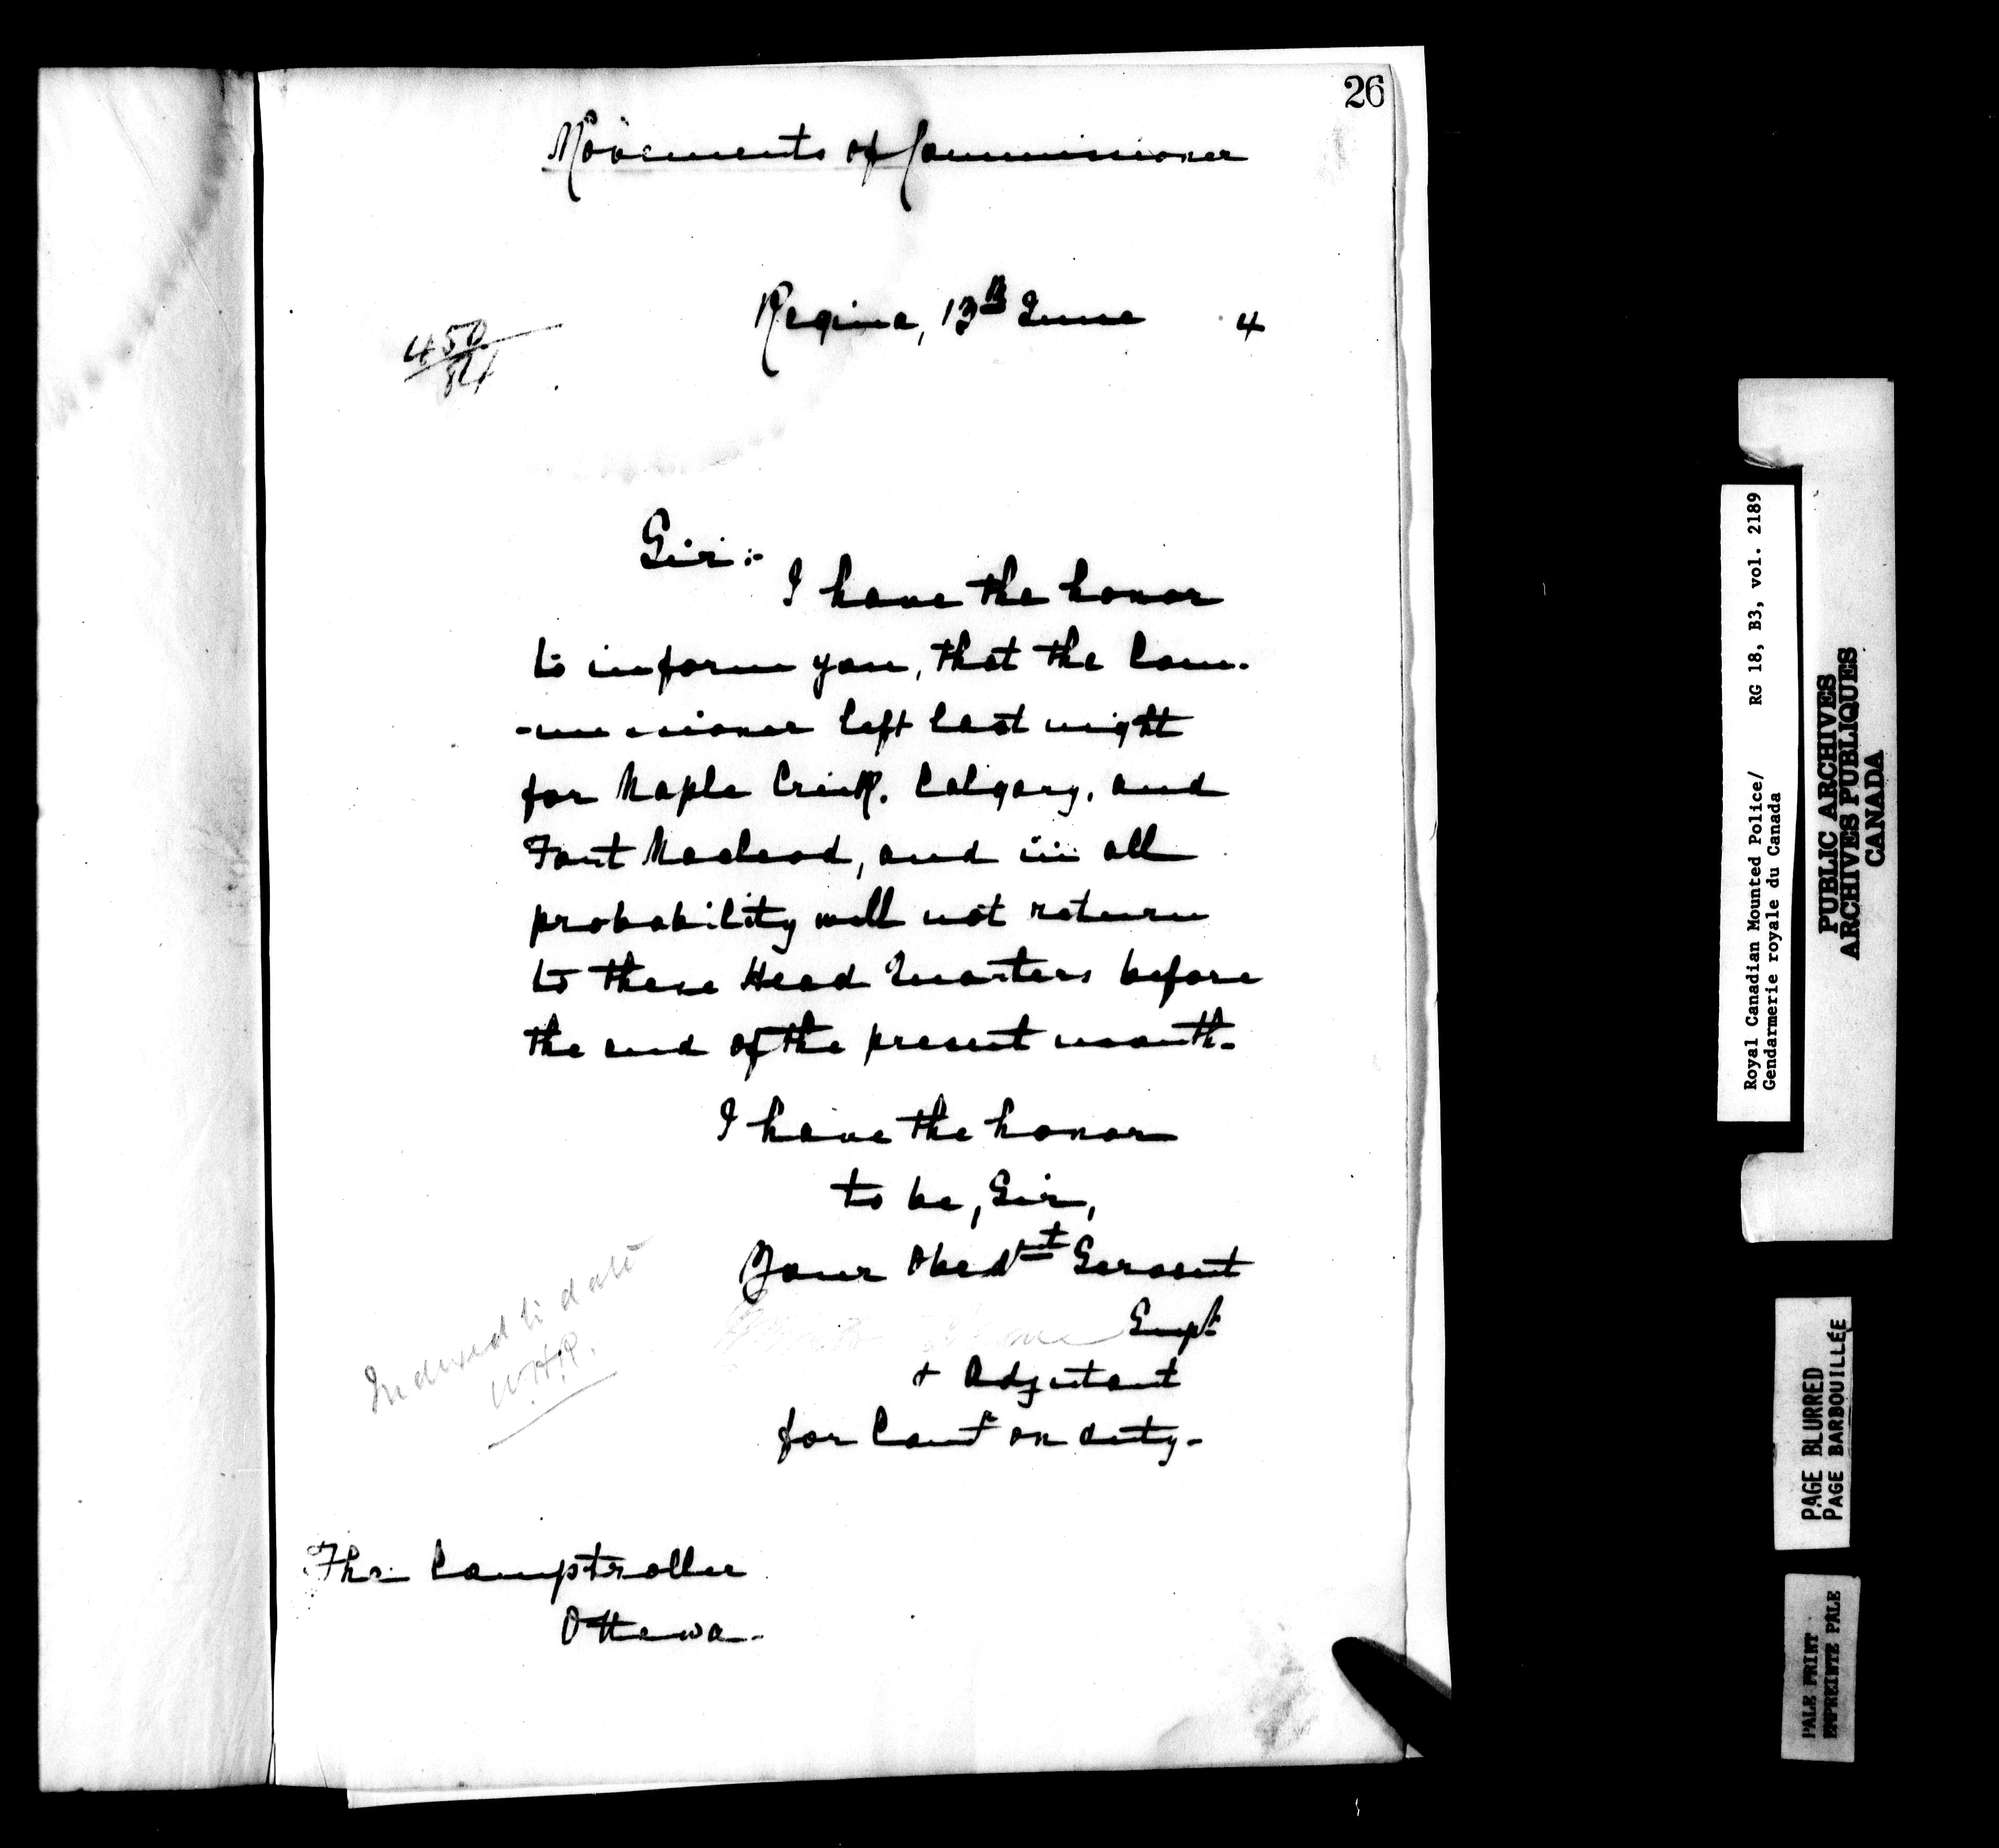 26
Movements of Commissioner
Regina, 13th June 4
450
84
Sir:-
I have the honor
to inform you, that the Com-
-missioner left last night
for Maple Creek, Calgary, and
Fort Macleod, and in all
probability will not return
to these Head Quarters before
the end of the present month-
I have the honor
to be, Sir,
Your Obednt Servant
Supt
+ Adjutant
for Comr on duty-
Indexed to date
W.H.R.
The Comptroller
Ottawa-
Royal Canadian Mounted Police/ RG 18, B3, vol. 2189
Gendarmerie royale du Canada
PUBLIC ARCHIVES
ARCHIVES PUBLIQUES
CANADA
PAGE BLURRED
PAGE BARBOUILLÉE
PALE PRINT
EMPREINTE PALE